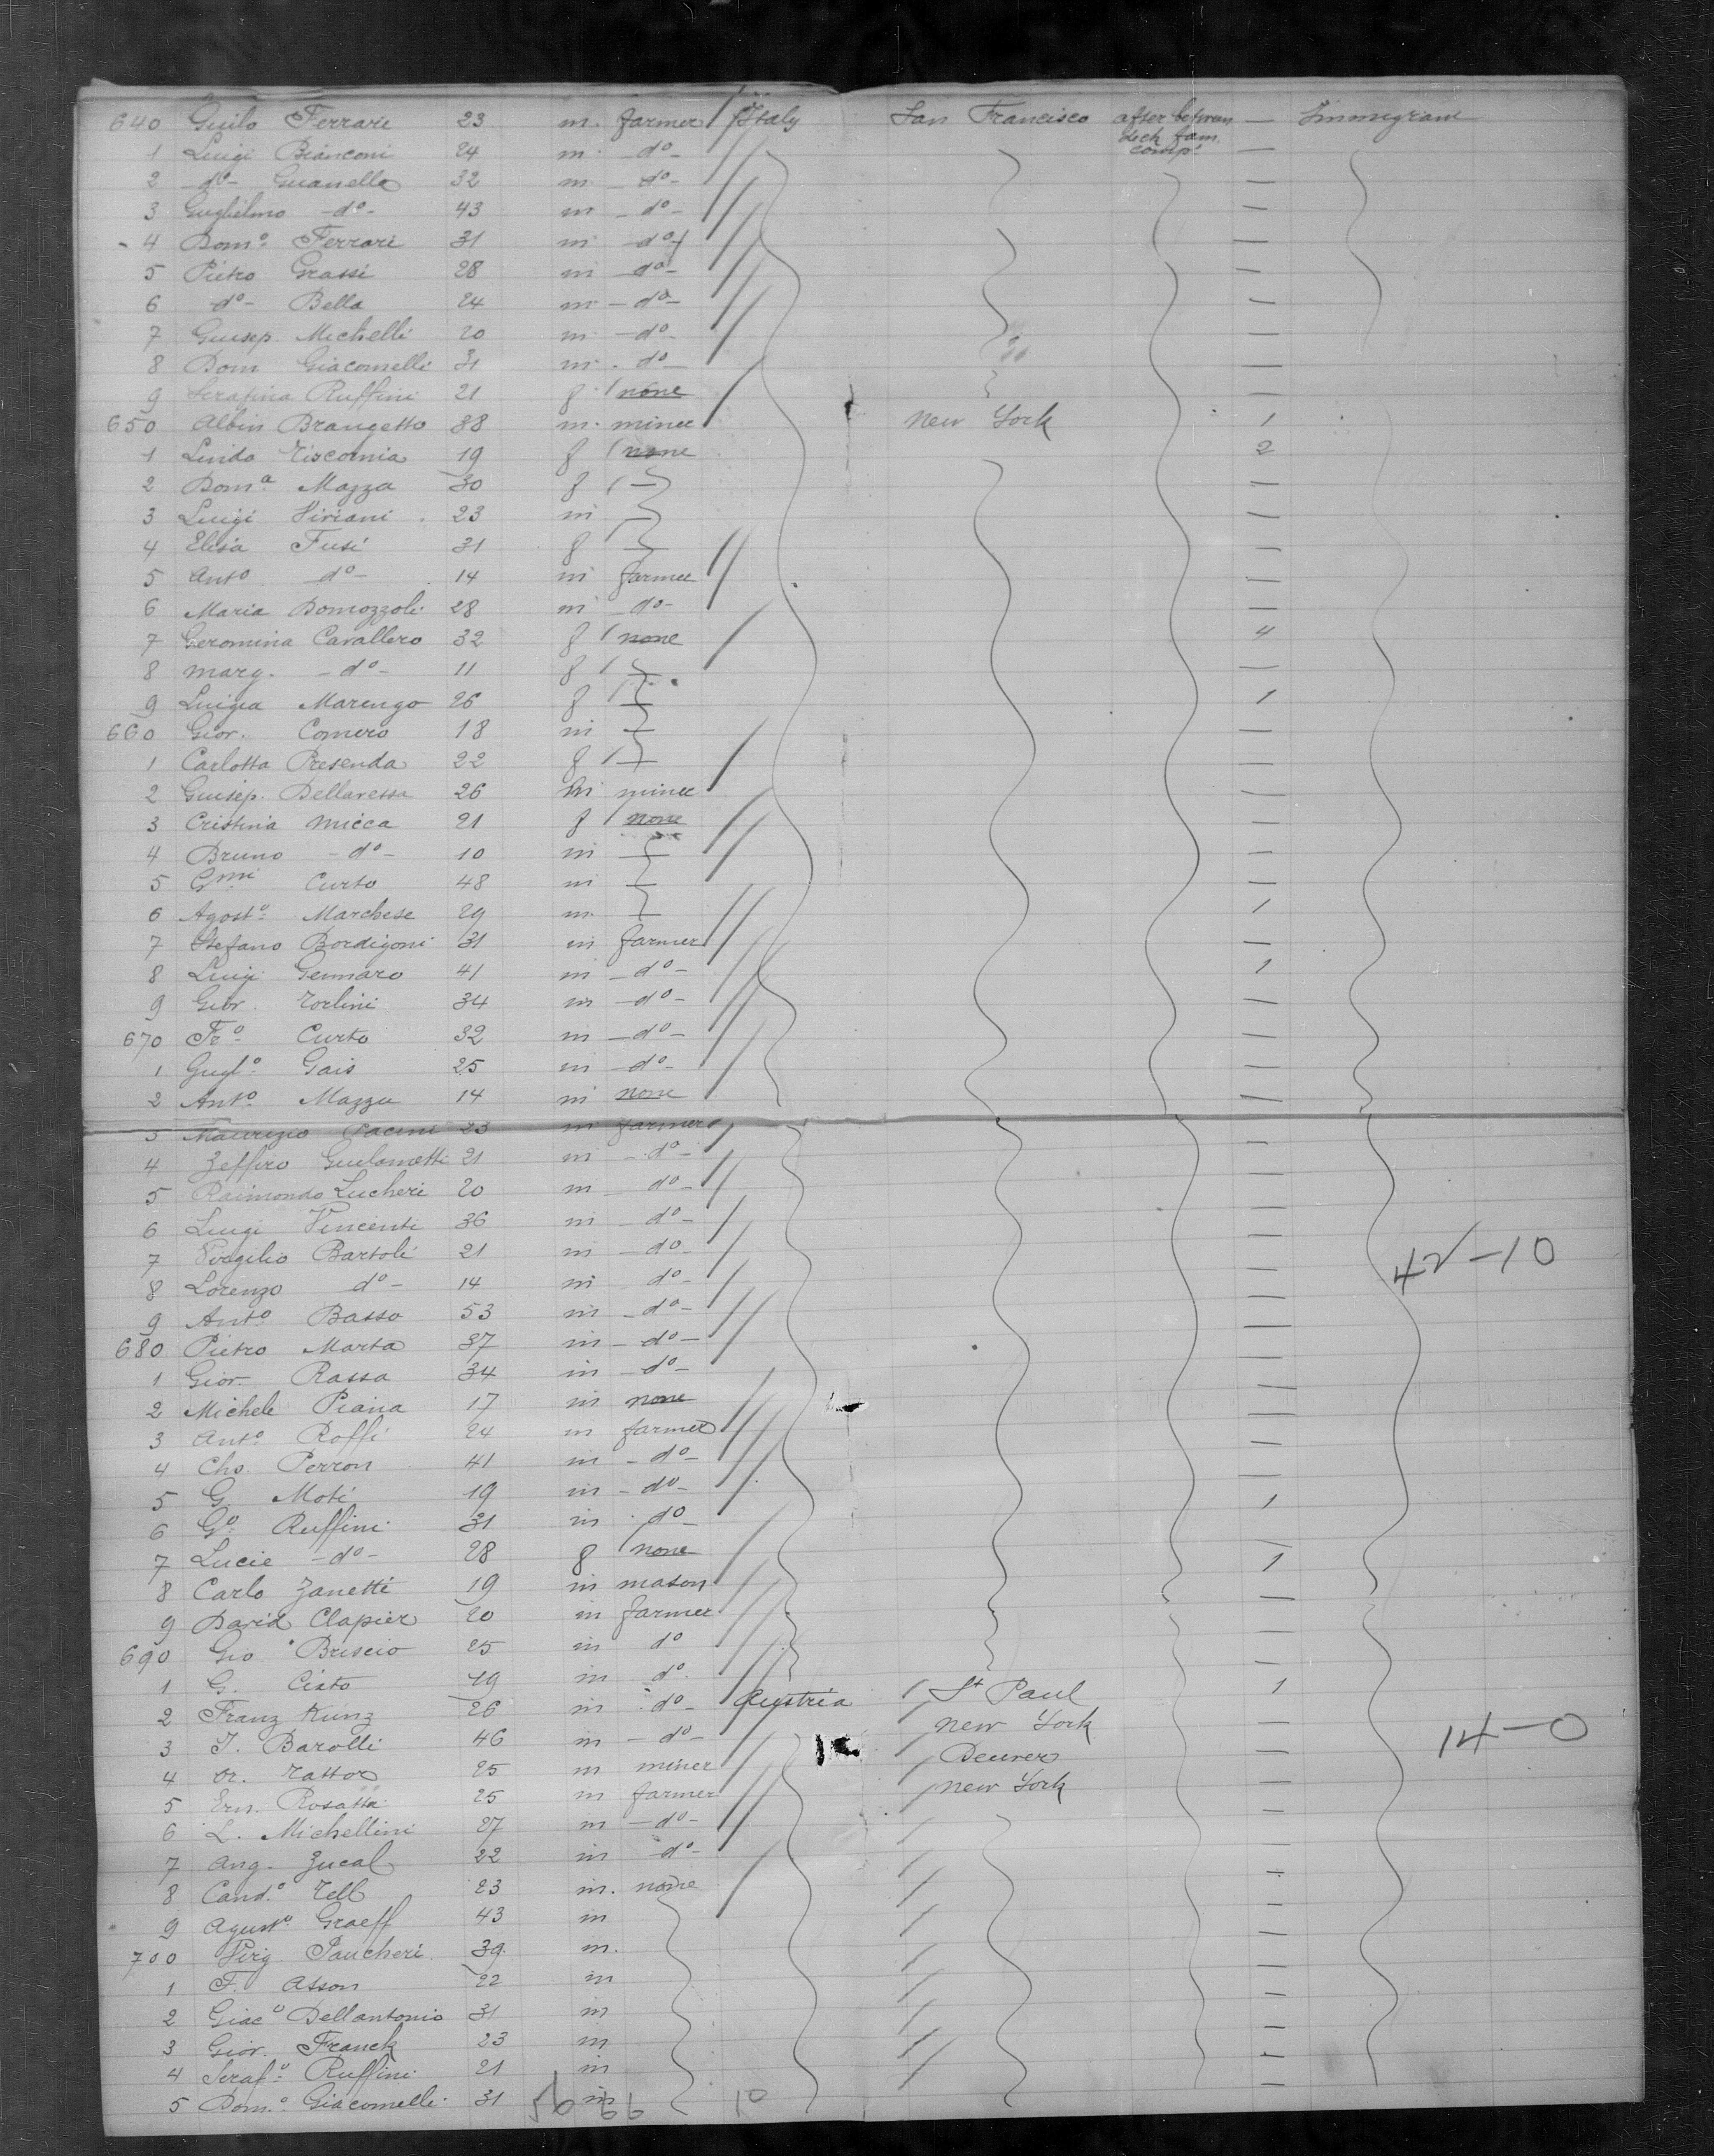 640 Guilo Ferrari 23 m. farmer Italy San Francisco after betwen — Immigrant
deck fam.
1 Luigi Bianconi 24 m -do- comp. —
2 -do- Guanella 32 m -do- —
3 Guglielmo -do- 43 m -do- —
4 Domo. Ferrari 31 m -do- —
5 Pietro Grassi 28 m -do- —
6 do- Bella 24 m -do- —
7 Guisep. Michelli 20 m -do- —
8 Dom Giacomelli 31 m. do- —
9 Serafina Ruffini 21 f none —
650 Albin Brangetto 38 m. miner New York 1
1 Linda 19 f none 2
2 Doma. Mazza 30 f — —
3 Luigi Viviani 23 m — —
4 Elisa Fusi 31 f — —
5 Anto -do- 14 m farmer —
6 Maria Domozzoli 28 m -do- —
7 Geromina Cavallero 32 f none 4
8 Marg. -do- 11 f —
9 Luigia Marengo 26 f — 1
660 Giov. Comero 18 m — —
1 Carlotta Presenda 22 f — —
2 Guisep. Dellavessa 26 m miner —
3 Cristina Micca 21 f none —
4 Bruno -do- 10 m — —
5 Gmi Curto 48 m — —
6 Agosto. Marchese 29 m. — 1
7 Stefano Bordigoni 31 m farmer —
8 Luigi Gennaro 41 m -do- 1
9 Giov. Torlini 34 m -do- —
670 Fro. Curto 32 m -do- —
1 Guglo. Gais 25 m -do- —
2 Anto. Mazza 14 m none —
3 Maurizio Pacini 23 m farmer
4 Zeffiro Guilametti 21 m -do- —
5 Raimondo Lucheri 20 m do- —
6 Luigi Vincenti 36 m -do- —
7 Virgilio Bartoli 21 m -do- — 42-10
8 Lorenzo do- 14 m do- —
9 Anto. Basso 53 m -do- —
680 Pietro Marta 37 m -do- —
1 Giov. Rassa 34 m -do- —
2 Michele Piana 17 m none —
3 Anto. Roffi 24 m farmer —
4 Chs. Perron 41 m -do- —
5 G. Moti 19 m -do- 1
6 Go. Ruffini 31 m do-
7 Lucie -do- 28 f none 1
8 Carlo Zanetti 19 m mason —
9 David Clapier 20 m farmer —
690 Gio Briscio 25 m do —
1 G. Ciato 19 m do. 1
2 Franz Kunz 26 m do- Austria St Paul
3 J. Barolli 46 m -do- New York — 14-0
4 Or. Tattor 25 m miner Denver —
5 Ern. Rosatta 25 m farmer New York —
6 L. Michellini 27 m -do- —
7 Ang. Zucal 22 m -do- —
8 Cando. Tell 23 m. none —
9 Agusto. Graeff 43 m —
700 Virg. Paucheri 39 m. —
1 F. Asson 22 m —
2 Giaco Dellantonio 31 m —
3 Giov. Franck 23 m —
4 Serafo. Ruffini 21 m —
5 Domo. Giacomelli 31 m —
56 66 10